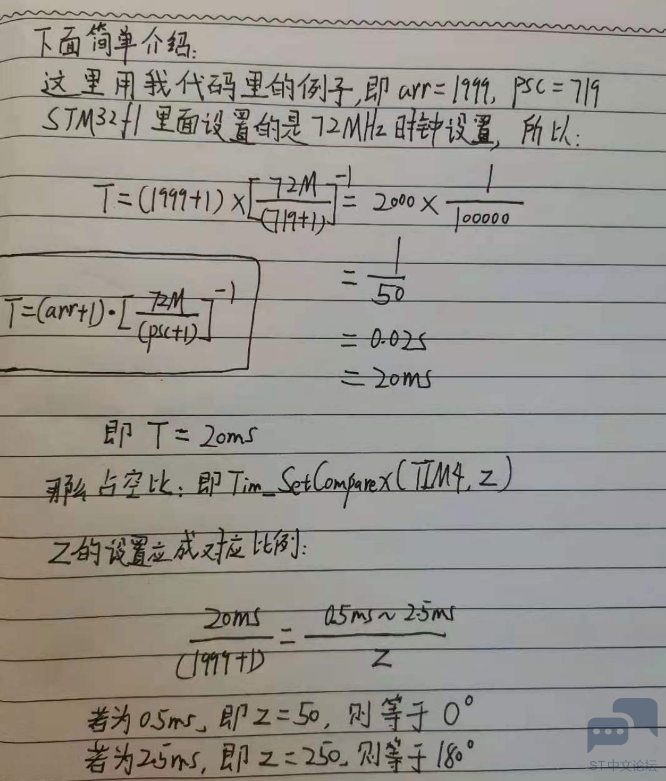 下面简单介绍:
这里用我代码里的例子,即 arr=1999, psc=719
STM32f1里面设置的是72MHz时钟设置, 所以:
T=(1999+1)×[72M/(719+1)]^-1 = 2000×1/100000
=1/50
T=(arr+1)·[72M/(psc+1)]^-1
=0.02s
=20ms
即 T=20ms
那么占空比: 即Tim_SetComparex(TIM4, Z)
Z的设置应成对应比例:
20ms/(1999+1) = 0.5ms~2.5ms/Z
若为0.5ms, 即Z=50, 则等于0°
若为2.5ms, 即Z=250, 则等于180°
ST中文论坛